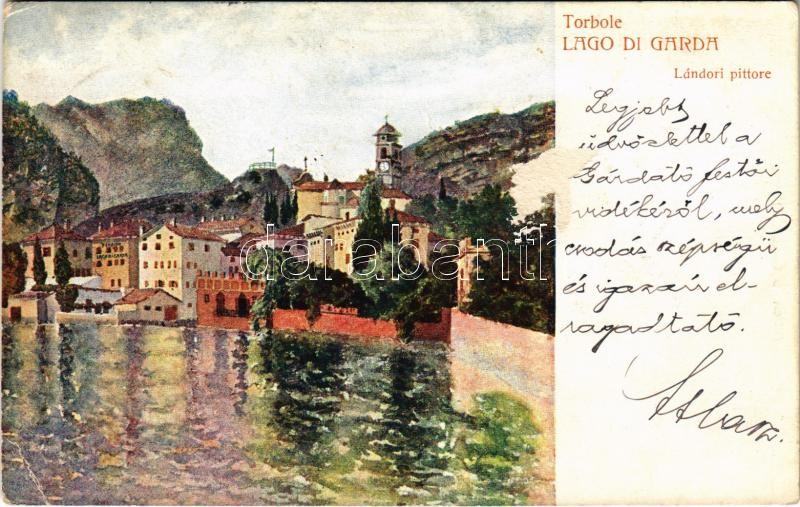 Torbole
LAGO DI GARDA
Lándori pittore
Legjobb
üdvözlettel a
Gárdató festői
vidékéről, mely
csodás szépségű
és igazán el-
ragadtató.
darabanth